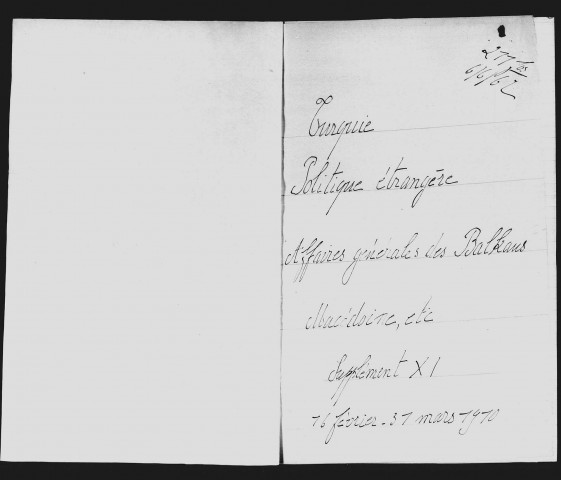 Turquie
Politique étrangère
Affaires générales des Balkans
Macédoine, etc
Supplément XI
16 février - 31 mars 1910